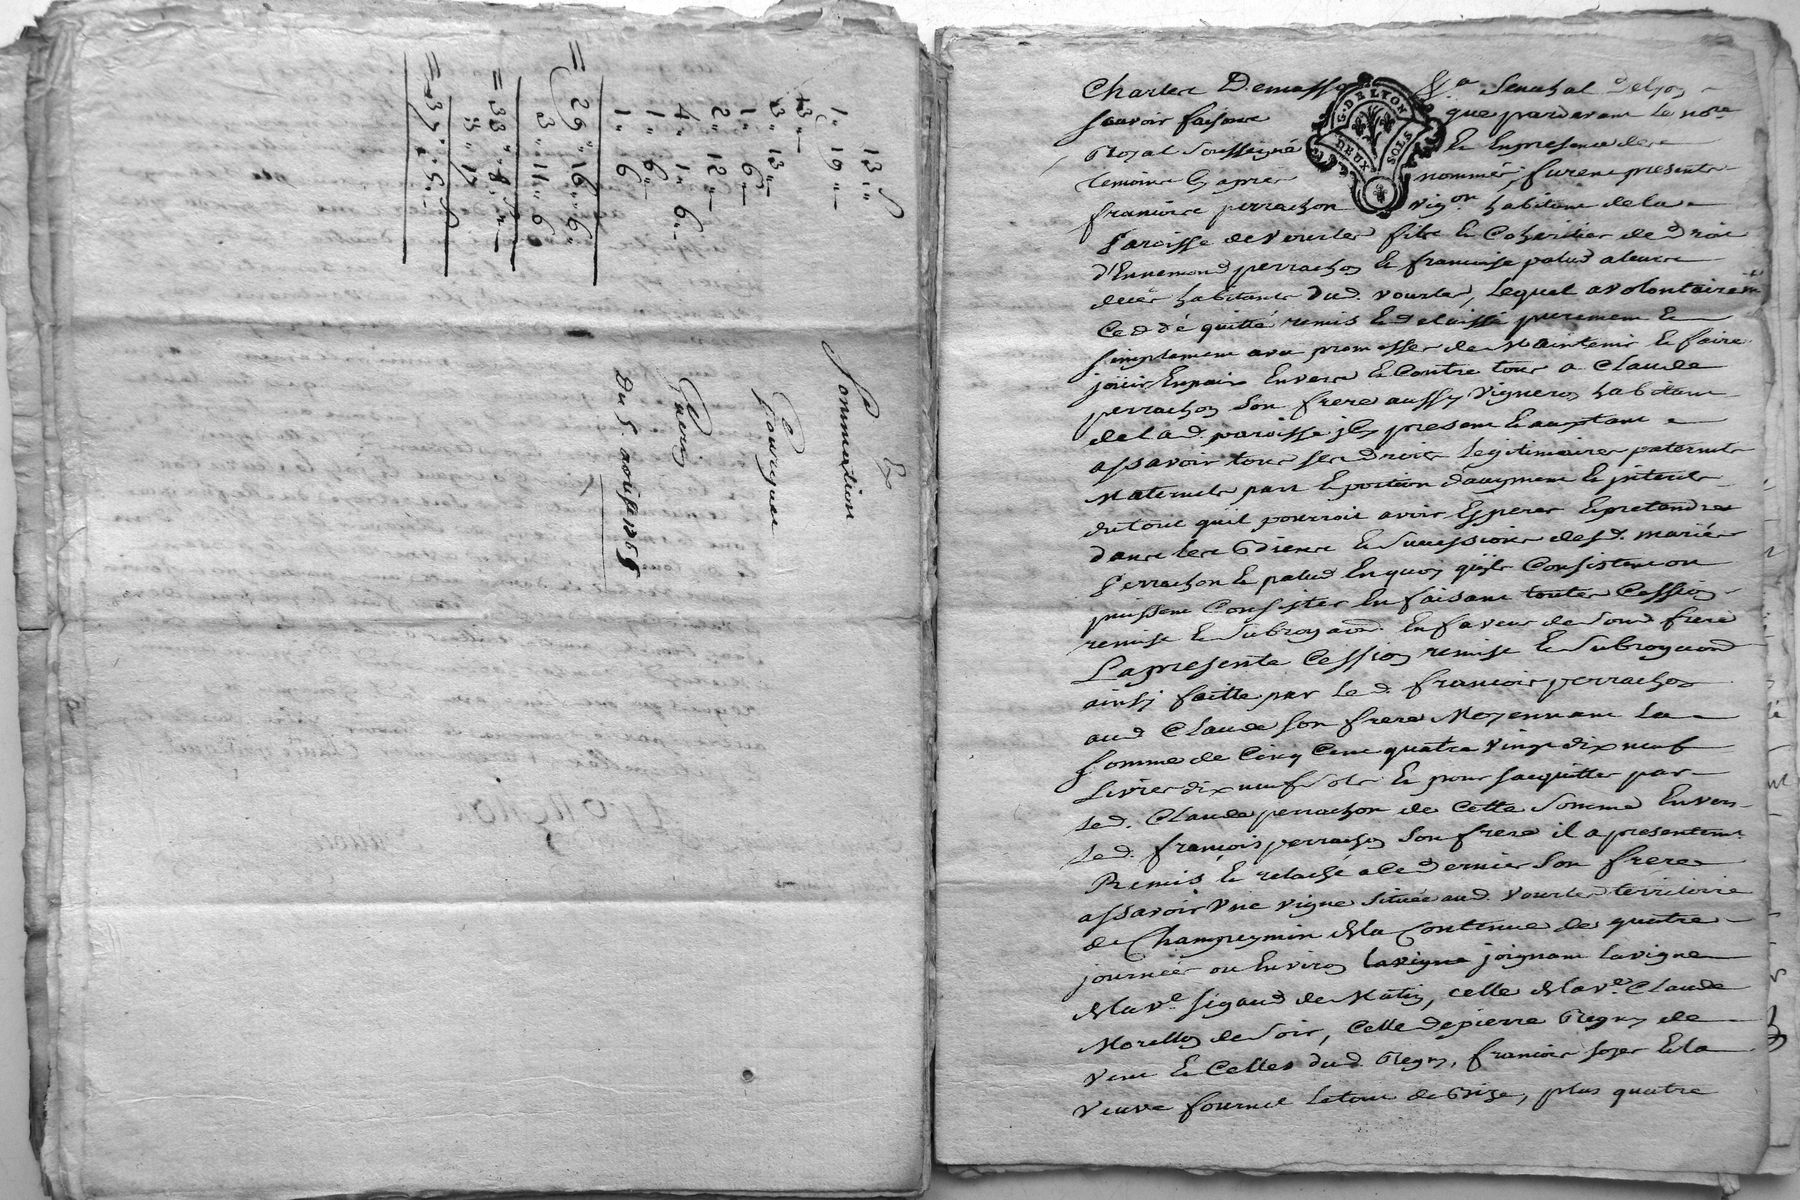 13 "
1 " 19 "
13 "
3 " 13 "
1 " 6 "
2 " 12 "
4 " 1 " 6
1 " 6 "
1 " 6
= 29 " 16 " 6
3 " 11 " 6
= 33 " 8 "
3 " 17
= 37 " 5 "
Sommation
Et
Guerin
Du 5. aoust 1765
G. DE LYON
DEUX SOLS
Charles Demasso Senechal Delyon
savoir faisons que pardevant le nore
Royal soussigné Et En presence des
temoins cy apres nommés, furent presents
francois perrachon vigon habitant de la
Paroisse de vourles fils & Coheritier de Droit
d'Ennemond perrachon & francoise palud a leurs
deces habitants Dud. vourles, Lequel a volontairemt
Cedé quitté remis & delaissé purement &
simplement avec promesses de Maintenir & faire
joüir En paix Envers & Contre tous a Claude
perrachon son frere aussy vigneron habitant
de lad. paroisse icy present & acceptant
assavoir tous ses Droits legitimaires paternels
Maternels part & portion d'augment & interets
du tout qu'il pourroit avoir Esperer & pretendre
Dans les Biens & successions desd. mariés
Perrachon & palud En quoy qu'ils Consistent ou
puissent Consister En faisant toutes Cession
remise & subrogaon. En faveur de sond. frere
La presente Cession remise & subrogaon
ainsy faitte par led. francois perrachon
aud Claude son frere Moyennant la
somme de Cinq Cent quatre vingt dix neuf
Livres dix neuf sols & pour s'acquitter par
led. Claude perrachon de Cette somme Envers
led. francois perrachon son frere il a presentemt
Remis & relaché a Ce dernier son frere
assavoir une vigne située aud. vourles territoire
de Champreymin de la Contenue de quatre
journées ou Environ la vigne joignant la vigne
de la ve. sigaud de Matin, celle de la ve. Claude
Morellon de soir, Celle de pierre Regny de
vent & Celles dud. Regny, francois soyer & la
veuve fournel le tout de Bize, plus quatre